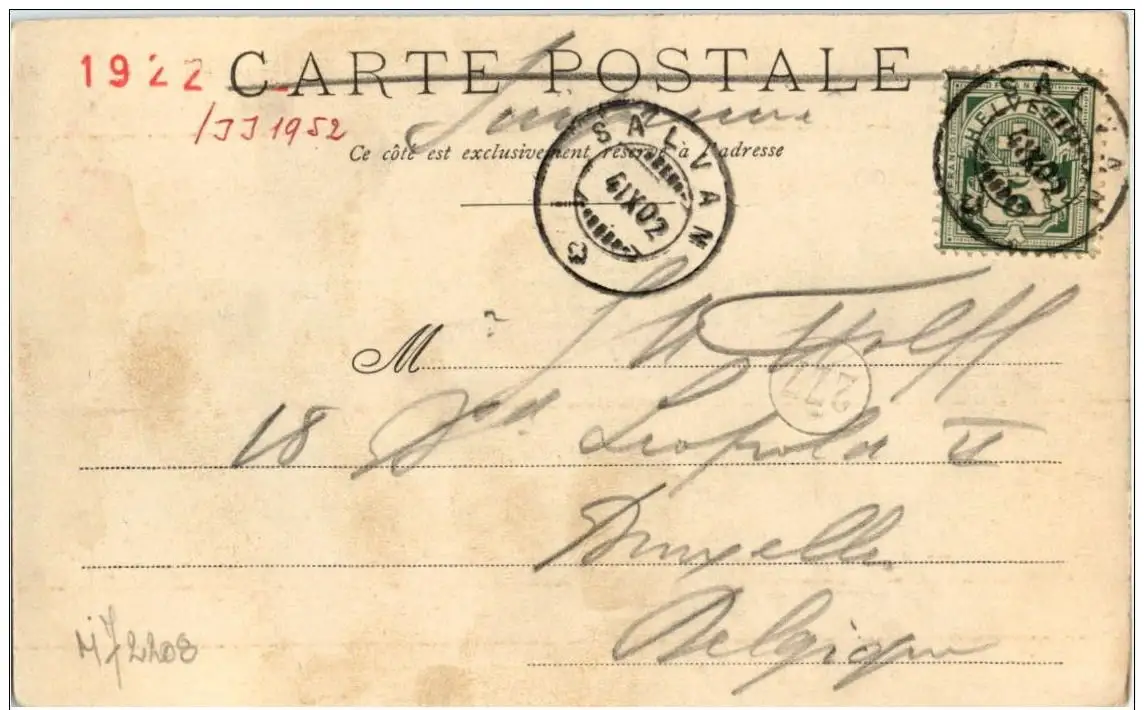 1922 CARTE POSTALE
/JJ1952
Ce côté est exclusivement réservé à l'adresse
SALVAN
4 IX 02
HELVETIA
FRANCO
SALVAN
4 IX 02
M
Wolff
277
18 Bd Leopold II
Bruxelles
Belgique
2208